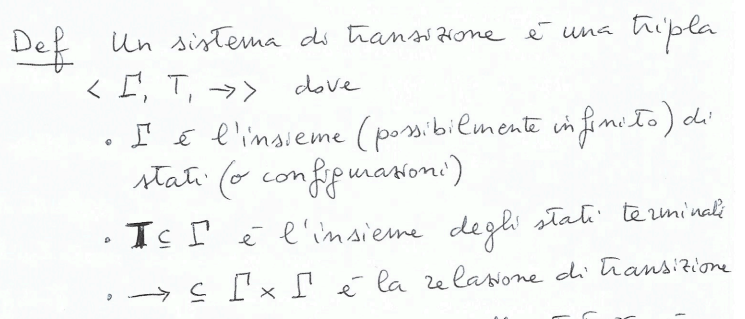 Def Un sistema di transizione è una tripla
< Γ, T, → > dove
• Γ è l'insieme (possibilmente infinito) di
stati (o configurazioni)
• T ⊆ Γ è l'insieme degli stati terminali
• → ⊆ Γ × Γ è la relazione di transizione